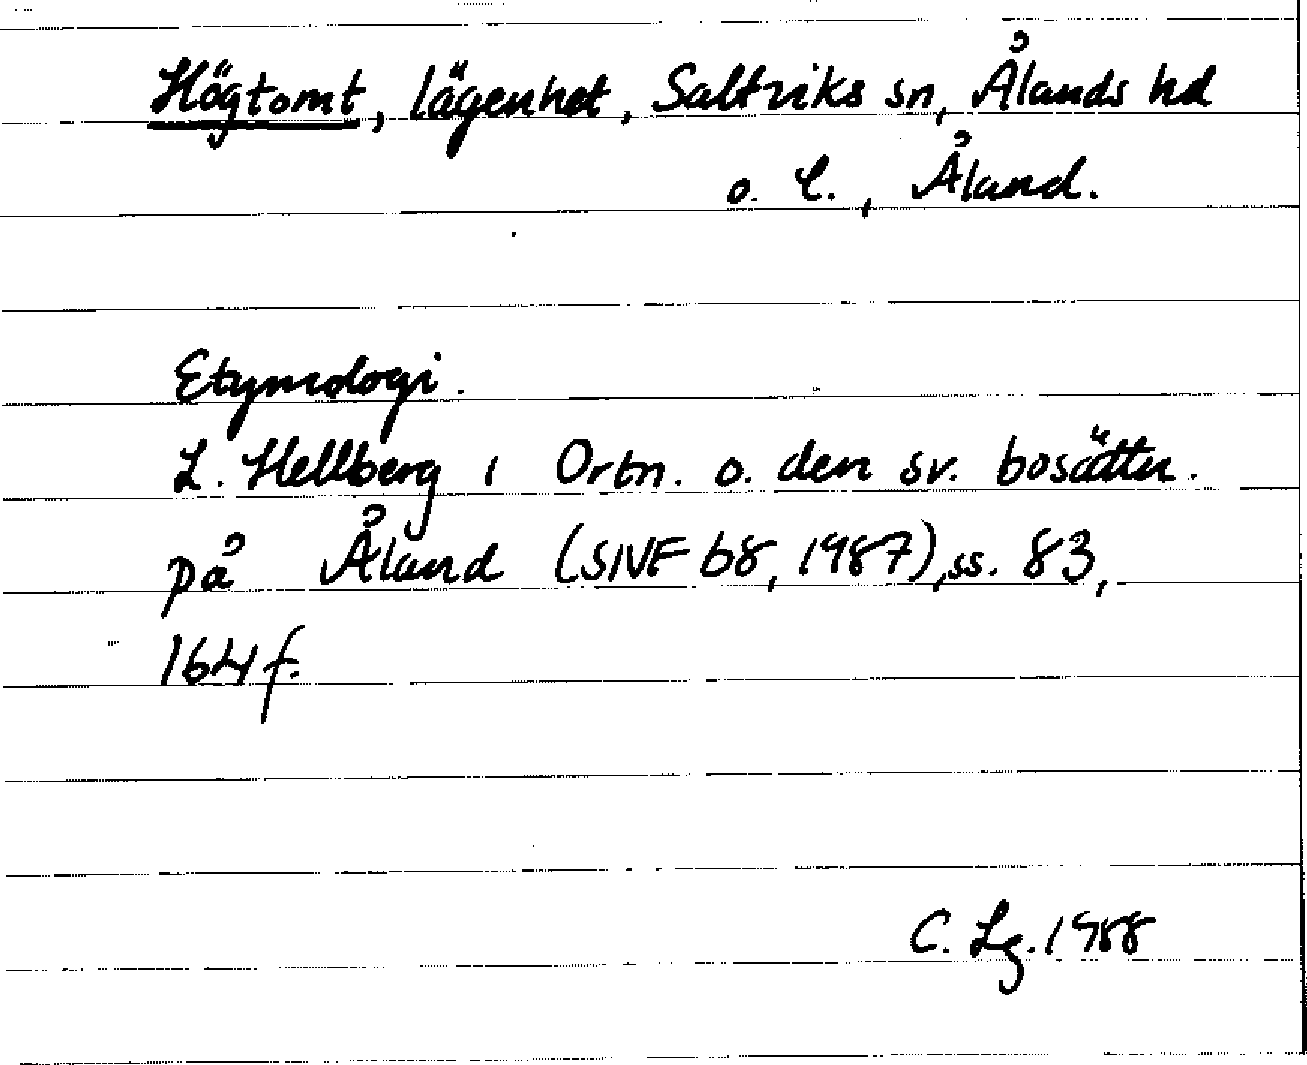 Högtomt, lägenhet, Saltviks sn, Ålands hd
o. l., Åland.
Etymologi.
L. Hellberg i Ortn. o. den sv. bosättn.
på Åland (SNF 68, 1987), ss. 83,
164 f.
C. Lg. 1988